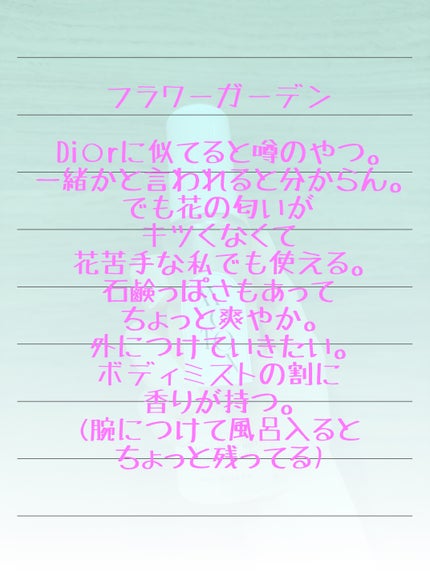 フラワーガーデン
Di○rに似てると噂のやつ。
一緒かと言われると分からん。
でも花の匂いが
キツくなくて
花苦手な私でも使える。
石鹸っぽさもあって
ちょっと爽やか。
外につけていきたい。
ボディミストの割に
香りが持つ。
(腕につけて風呂入ると
ちょっと残ってる)